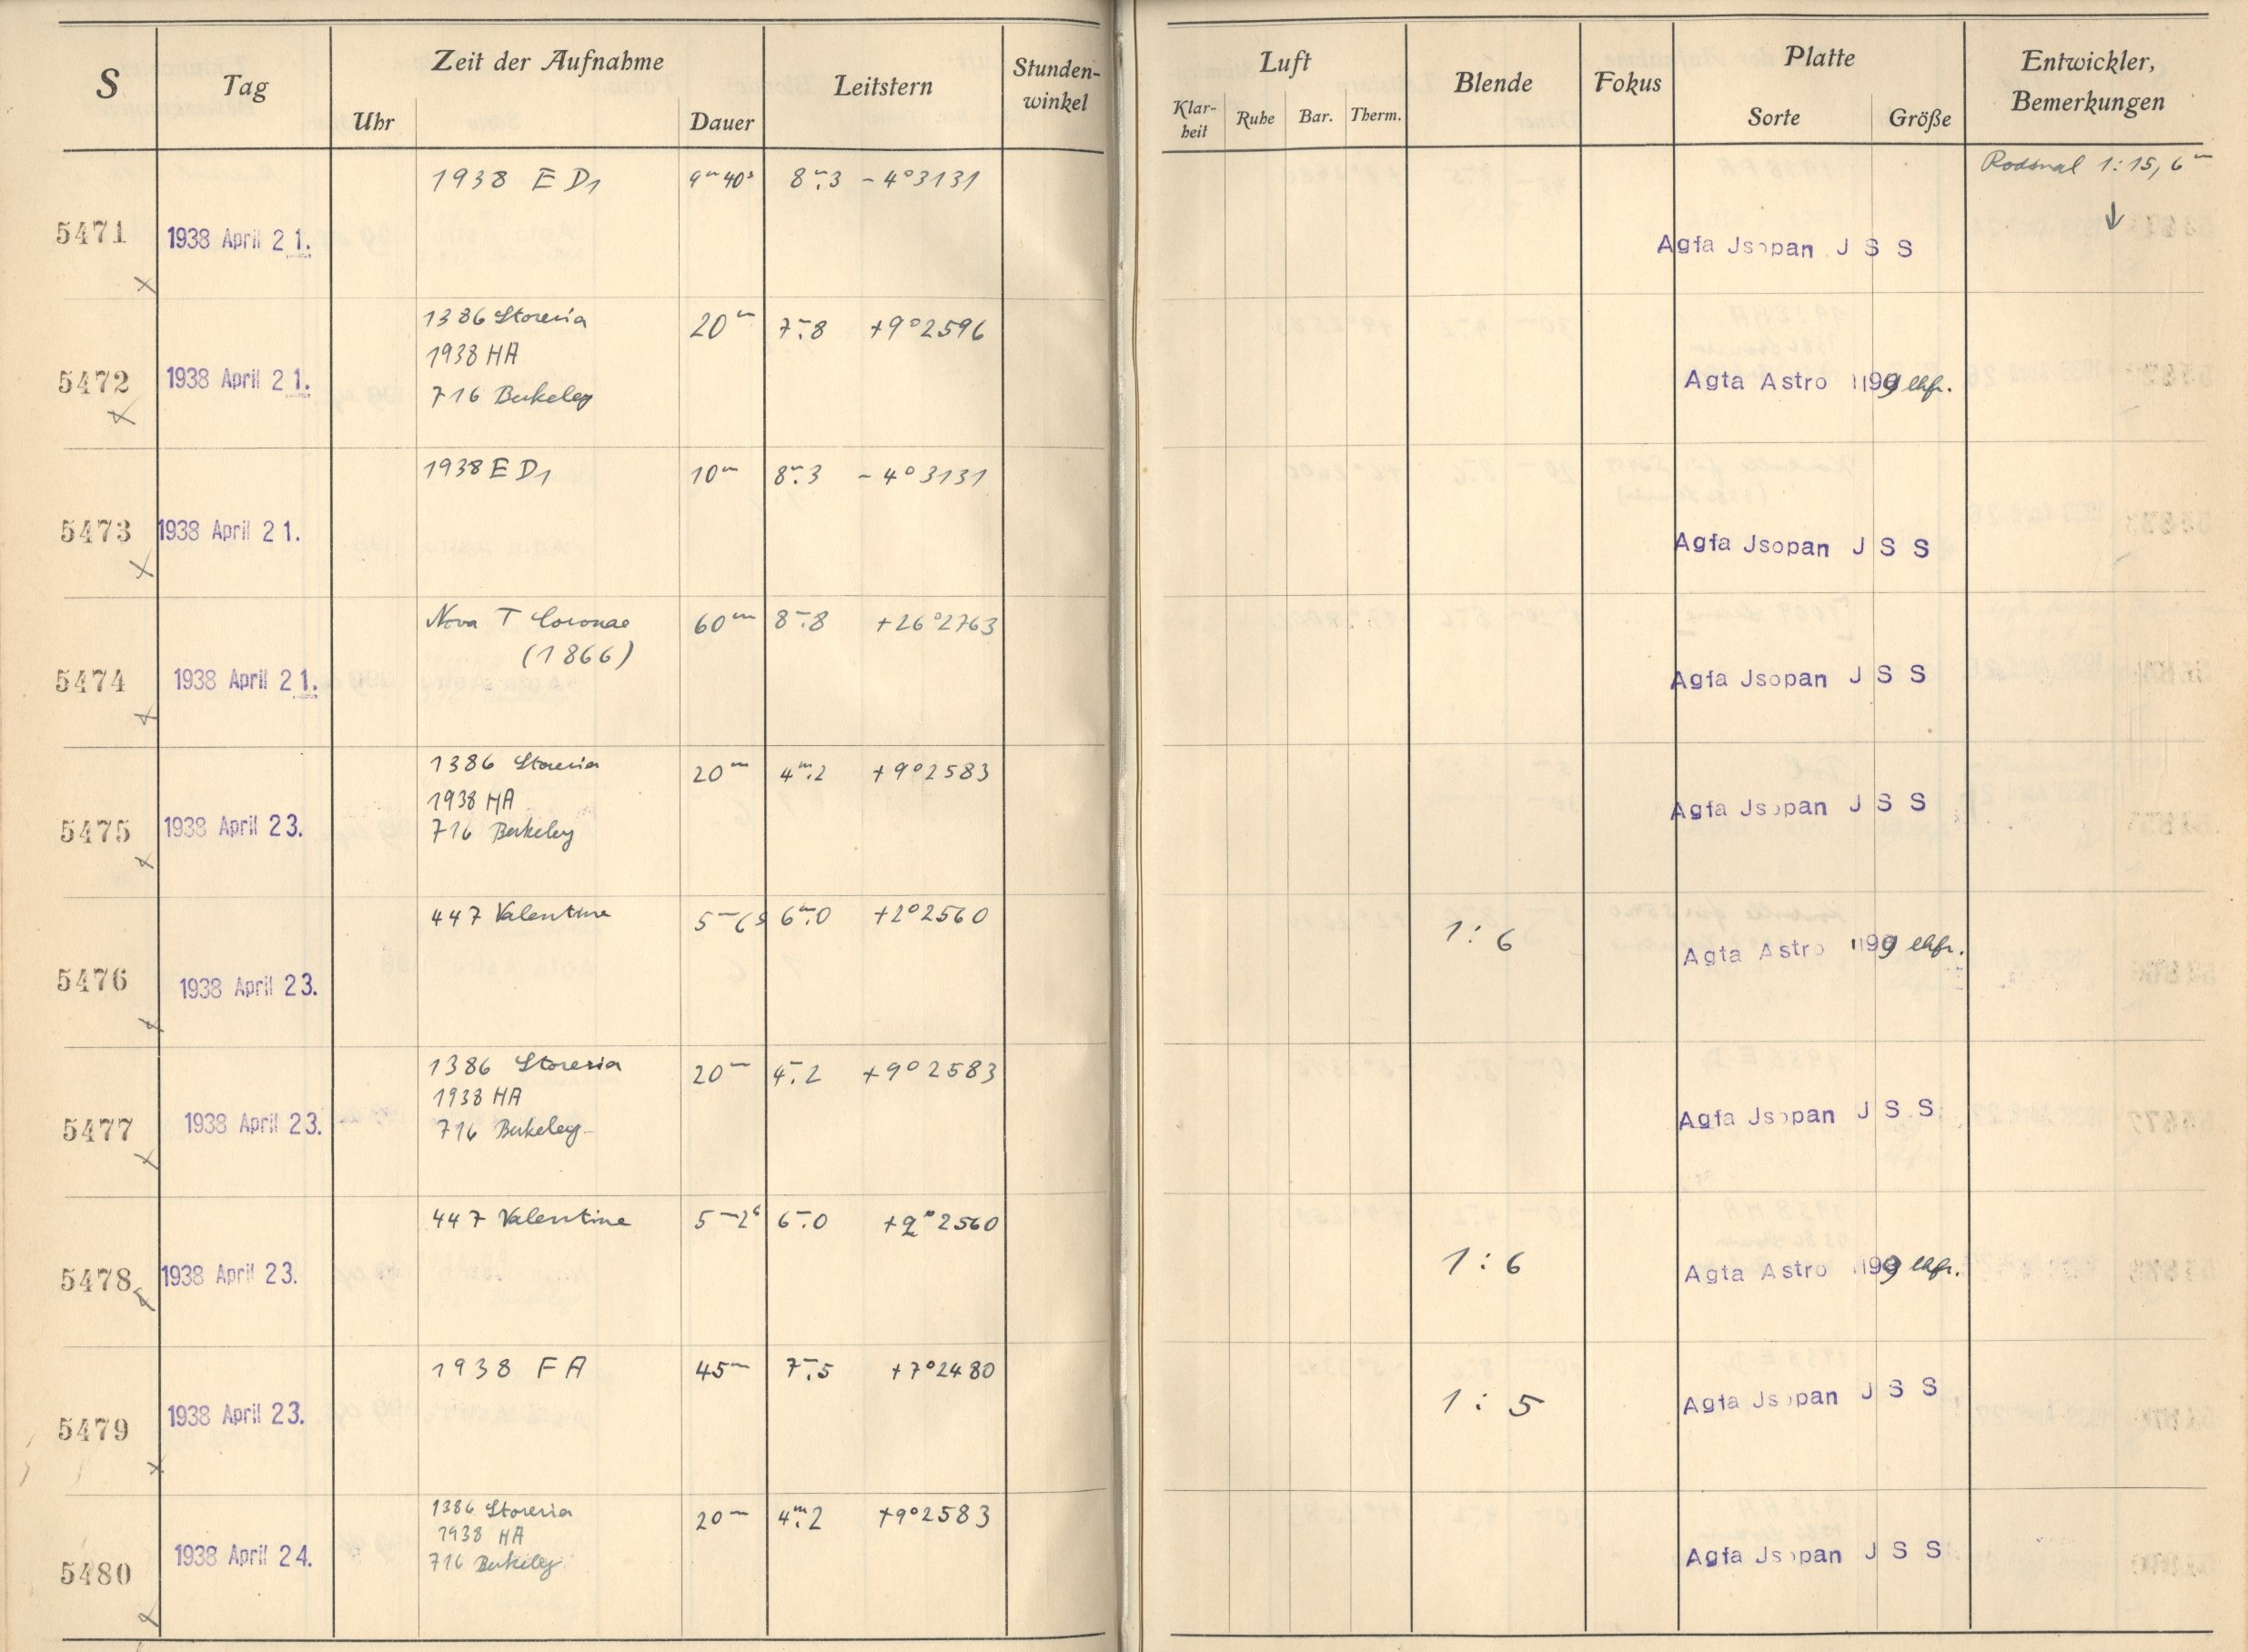 S Tag Zeit der Aufnahme Leitstern Stunden-
winkel
Uhr Dauer
Luft Blende Fokus Platte Entwickler,
Bemerkungen
Klar-
heit Ruhe Bar. Therm. Sorte Größe
1938 E D1 9m 40s 8m.3 -4°3131 Rodinal 1:15, 6m
↓
5471 1938 April 21. Agfa Jsopan J S S
1386 Storeria 20m 7m.8 +9°2596
1938 HA
5472 1938 April 21. 716 Berkeley Agfa Astro 1199 lhfr.
1938 E D1 10m 8m.3 -4°3131
5473 1938 April 21. Agfa Jsopan J S S
Nova T Coronae 60m 8m.8 +26°2763
(1866)
5474 1938 April 21. Agfa Jsopan J S S
1386 Storeria 20m 4m.2 +9°2583
1938 HA
5475 1938 April 23. 716 Berkeley Agfa Jsopan J S S
447 Valentine 5m 6.0 +2°2560
1:6
5476 1938 April 23. Agfa Astro 1199 lhfr.
1386 Storeria 20m 4m.2 +9°2583
1938 HA
5477 1938 April 23. 716 Berkeley Agfa Jsopan J S S
447 Valentine 5m 6m.0 +2°2560
5478 1938 April 23. 1:6 Agfa Astro 1199 lhfr.
1938 FA 45m 7m.5 +7°2480
5479 1938 April 23. 1:5 Agfa Jsopan J S S
1386 Storeria 20m 4m.2 +9°2583
1938 HA
5480 1938 April 24. 716 Berkeley Agfa Jsopan J S S